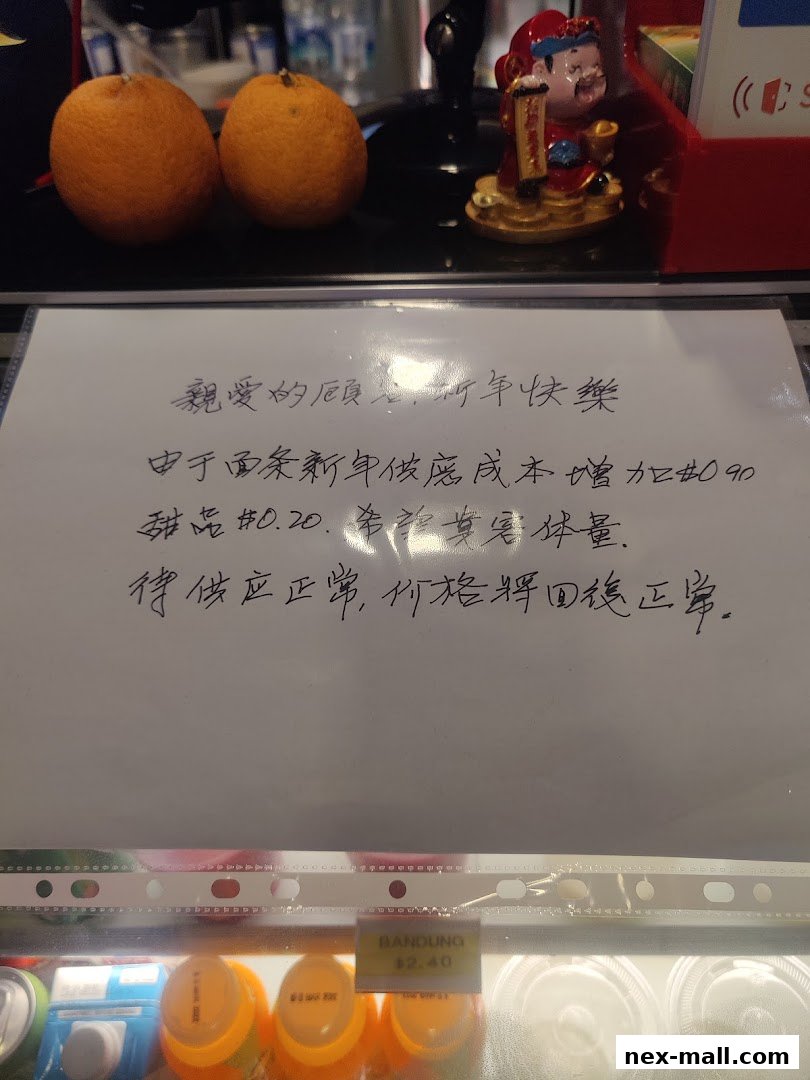 親愛的顾客,新年快樂
由于面条新年供應成本增加$0.90
甜品$0.20.希望貴客体量.
待供应正常,价格将回復正常.
BANDUNG
$2.40
nex-mall.com